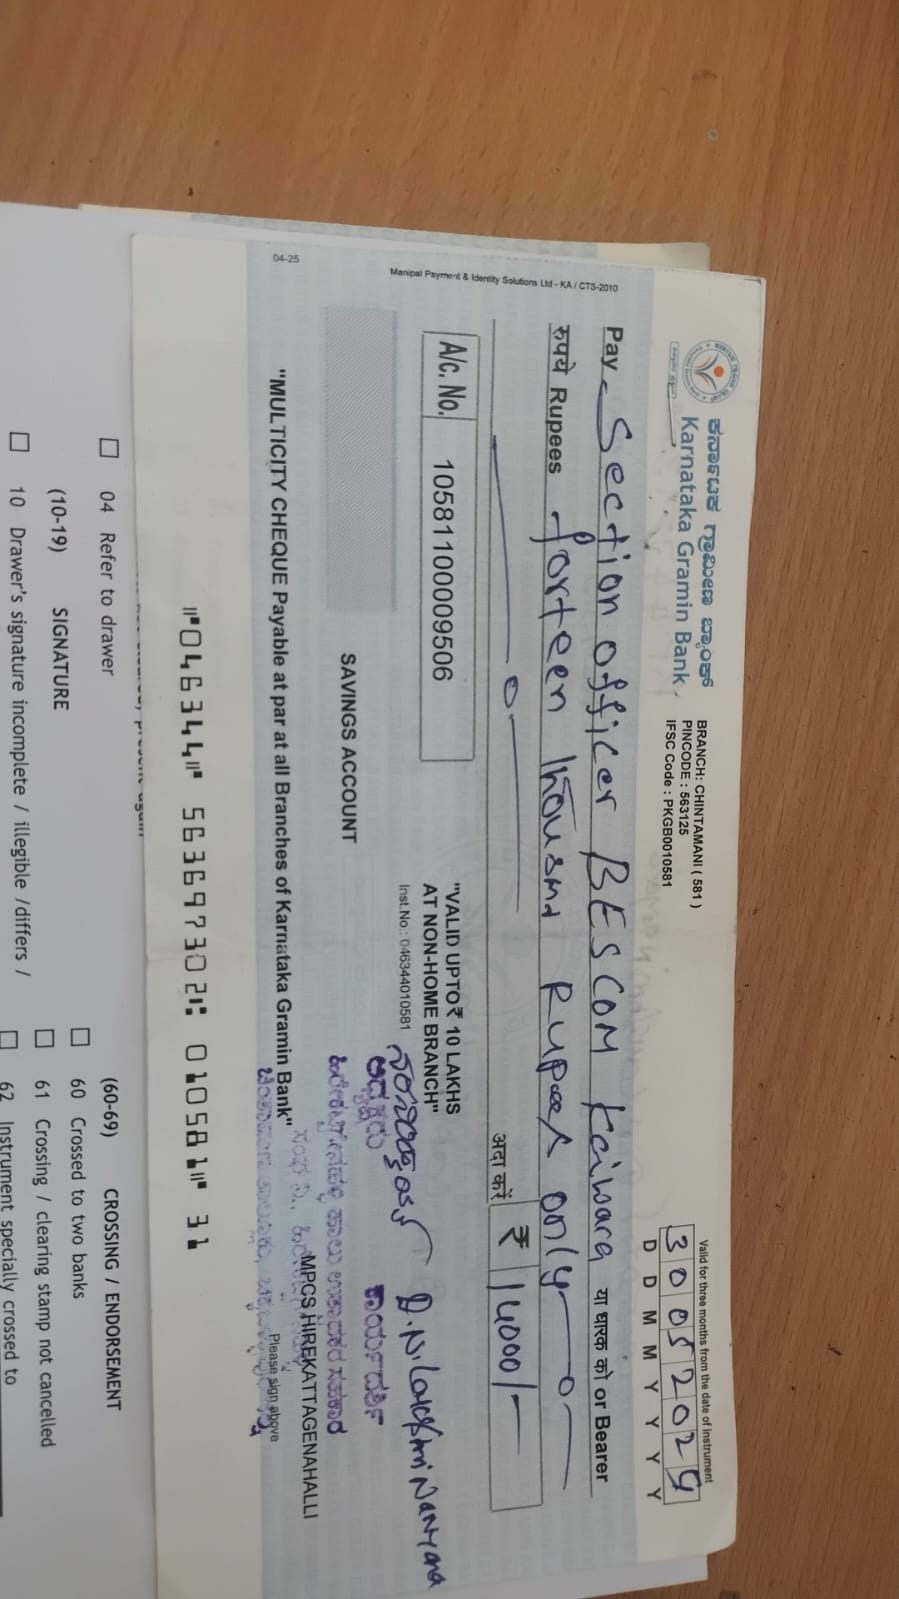 ಕರ್ನಾಟಕ ಗ್ರಾಮೀಣ ಬ್ಯಾಂಕ್
Karnataka Gramin Bank
BRANCH: CHINTAMANI ( 581 )
PINCODE : 563125
IFSC Code : PKGB0010581
Valid for three months from the date of instrument
3 0 0 5 2 0 2
D D M M Y Y Y Y
Pay Section officer BESCOM Kaiwara या धारक को or Bearer
रुपये Rupees forteen thousand Rupees only
अदा करें ₹ 14000/-
A/c. No. 10581100009506
"VALID UPTO ₹ 10 LAKHS
AT NON-HOME BRANCH"
Inst.No.: 046344010581
SAVINGS ACCOUNT
ಅಧ್ಯಕ್ಷರು ಕಾರ್ಯದರ್ಶಿ
MPCS HIREKATTAGENAHALLI
Please sign above
"MULTICITY CHEQUE Payable at par at all Branches of Karnataka Gramin Bank"
Manipal Payment & Identity Solutions Ltd - KA / CTS-2010
04-25
⑈046344⑈ 563697302⑆ 010581⑈ 31
04 Refer to drawer
(10-19) SIGNATURE
10 Drawer's signature incomplete / illegible /differs /
(60-69) CROSSING / ENDORSEMENT
60 Crossed to two banks
61 Crossing / clearing stamp not cancelled
62 Instrument specially crossed to